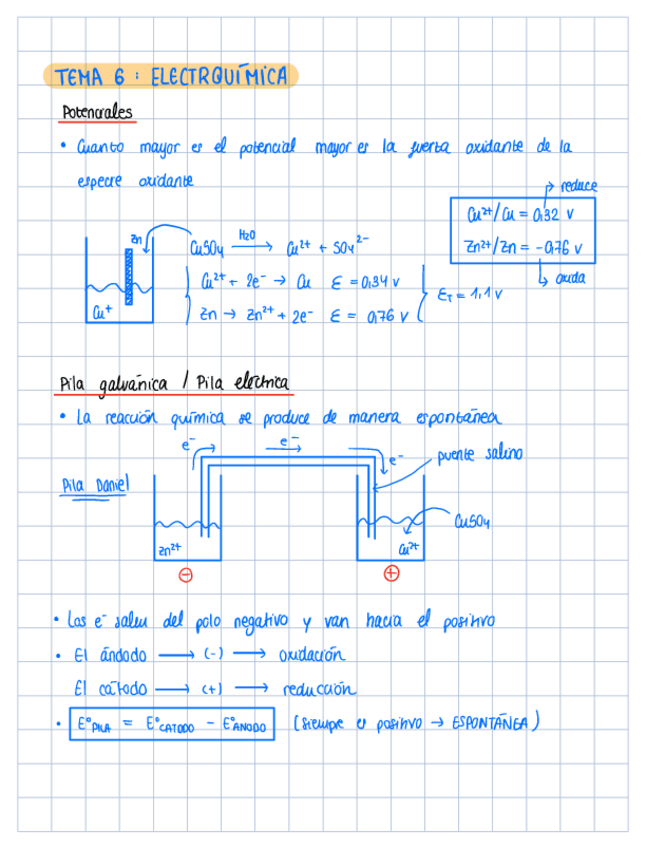 TEMA 6 : ELECTRQUÍMICA
Potenciales
• Cuanto mayor es el potencial mayor es la fuerza oxidante de la
especie oxidante
→ reduce
Cu²⁺/Cu = 0,32 V
Zn²⁺/Zn = -0,76 V
↳ oxida
Zn
Cu⁺
CuSO₄ H₂O → Cu²⁺ + SO₄²⁻
Cu²⁺ + 2e⁻ → Cu ℰ = 0,34 V
Zn → Zn²⁺ + 2e⁻ ℰ = 0,76 V
ℰT = 1,1 V
Pila galvánica / Pila eléctrica
• La reacción química se produce de manera espontánea
e⁻ e⁻ e⁻
puente salino
Pila Daniel
CuSO₄
Zn²⁺ Cu²⁺
⊖ ⊕
• Los e⁻ salen del polo negativo y van hacia el positivo
• El ándodo → (-) → oxidación
El cátodo → (+) → reducción
• E°PILA = E°CATODO - E°ANODO (Siempre es positivo → ESPONTÁNEA)